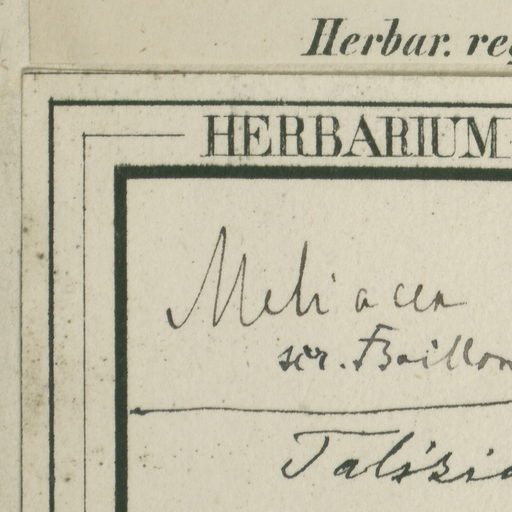 Herbar. reg
HERBARIUM
Meliacea
scr. Baillon
Talisia